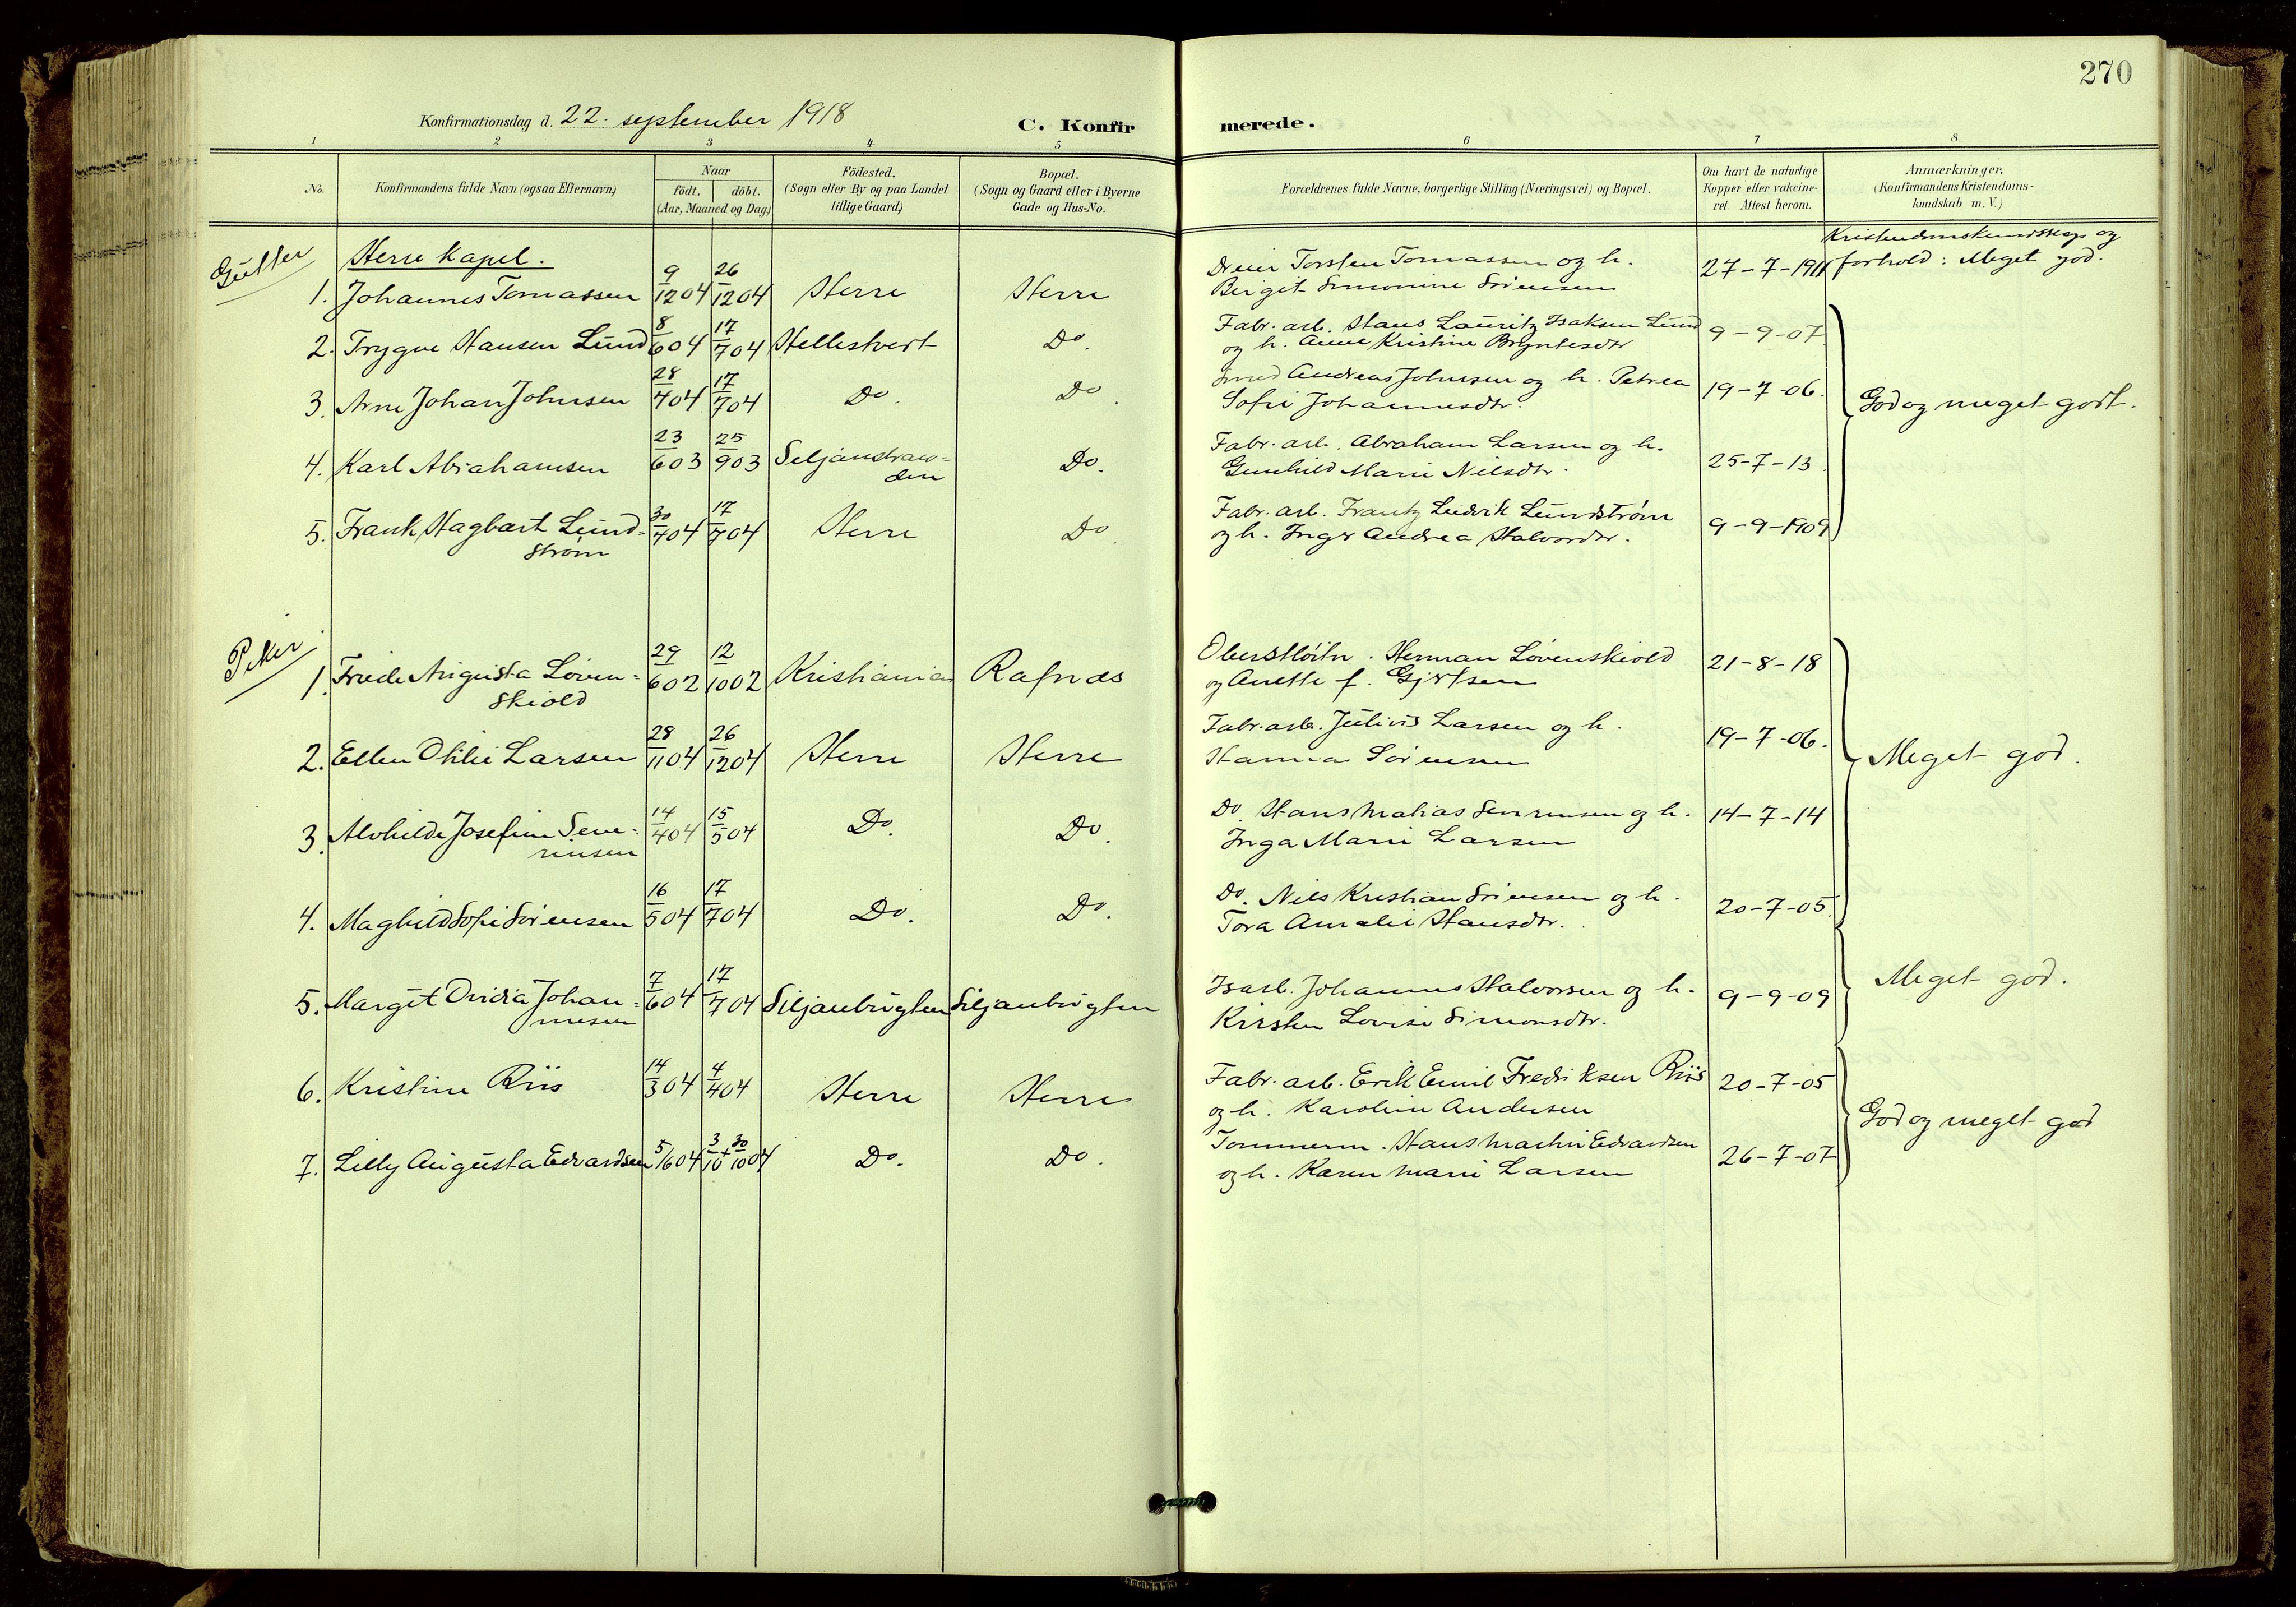 270
Konfirmationsdag d. 22. september 1918
C. Konfirmerede.
1 2 3 4 5 6 7 8
No.
Konfirmandens fulde Navn (ogsaa Efternavn)
Naar
født. døbt.
(Aar, Maaned og Dag)
Fødested.
(Sogn eller By og paa Landet
tillige Gaard)
Bopæl.
(Sogn og Gaard eller i Byerne
Gade og Hus-No.
Forældrenes fulde Navne, borgerlige Stilling (Næringsvei) og Bopæl.
Om havt de naturlige
Kopper eller vakcine-
ret. Attest herom.
Anmærkninger,
(Konfirmandens Kristendoms-
kundskab m. V.)
Gutter
Herre Kapel.
1. Johannes Tomassen 9/12 04 26/12 04 Herre Herre
Dreier Torsten Tomassen og h.
Birgit Simonine Sörensen
27-7-1911
Kristendomskundskap og
forhold: Meget god.
2. Trygve Hansen Lund 8/6 04 17/7 04 Hellestvert Do.
Fabr. arb. Hans Lauritz Isaksen Lund
og h. Anne Kristine Bryntesdtr
9-9-07
3. Arne Johan Johnsen 28/4 04 17/7 04 Do. Do.
Smed Andreas Johnsen og h. Petrea
Sofie Johannesdtr.
19-7-06.
God og meget godt.
4. Karl Abrahamsen 23/6 03 25/9 03 Seljanstran-
den Do.
Fabr. arb. Abraham Larsen og h.
Gunhild Marie Nilsdtr.
25-7-13.
5. Frank Hagbart Lund-
strøm 30/4 04 17/7 04 Herre Do.
Fabr. arb. Frantz Ludvik Lundstrøm
og h. Inger Andrea Halvordtr.
9-9-1909
Piker
1. Friede Augusta Løven-
skiold 29/6 02 12/10 02 Kristiania Rafnæs
Oberstløitn. Herman Løvenskiold
og Anette f. Gjertsen
21-8-18
2. Ellen Otilie Larsen 28/11 04 26/12 04 Herre Herre
Fabr. arb. Julius Larsen og h.
Hanna Sörensen
19-7-06.
Meget god.
3. Alvhilde Josefine Seve-
rinsen 14/4 04 15/5 04 Do. Do.
Do. Hans Mathias Severinsen og h.
Inga Marie Larsen
14-7-14
4. Maghild Sofie Sörensen 16/5 04 17/7 04 Do. Do.
Do. Nils Kristian Sörensen og h.
Tora Amalie Hansdtr.
20-7-05.
5. Margit Ovidia Johan-
nesen 7/6 04 17/7 04 Siljanbugten Siljanbugten
Isarb. Johannes Halvorsen og h.
Kirsten Lovise Simonsdtr.
9-9-09
Meget god.
6. Kristine Riis 14/3 04 4/4 04 Herre Herre
Fabr. arb. Erik Emil Fredriksen Riis
og h. Karoline Andersen
20-7-05
God og meget god
7. Lilly Augusta Edvardsen 5/6 04 3/10 + 30/10 04 Do. Do.
Tømmerm. Hans Martin Edvardsen
og h. Karen Marie Larsen
26-7-07